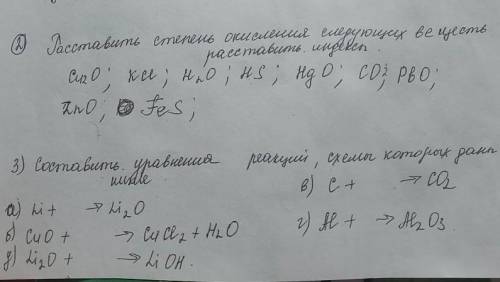 2 Расставить степень окисления следующих веществ
расставить индексы.
Cu2O; KCl; HnO; HS; HgO; CO2; PbO;
ZnO; FeS;
3) Составить уравнения реакций, схемы которых даны
ниже
в) C + → CO2
а) Li + → Li2O
б) CuO + → CuCl2 + H2O
г) Al + → Al2O3.
д) Li2O + → LiOH.